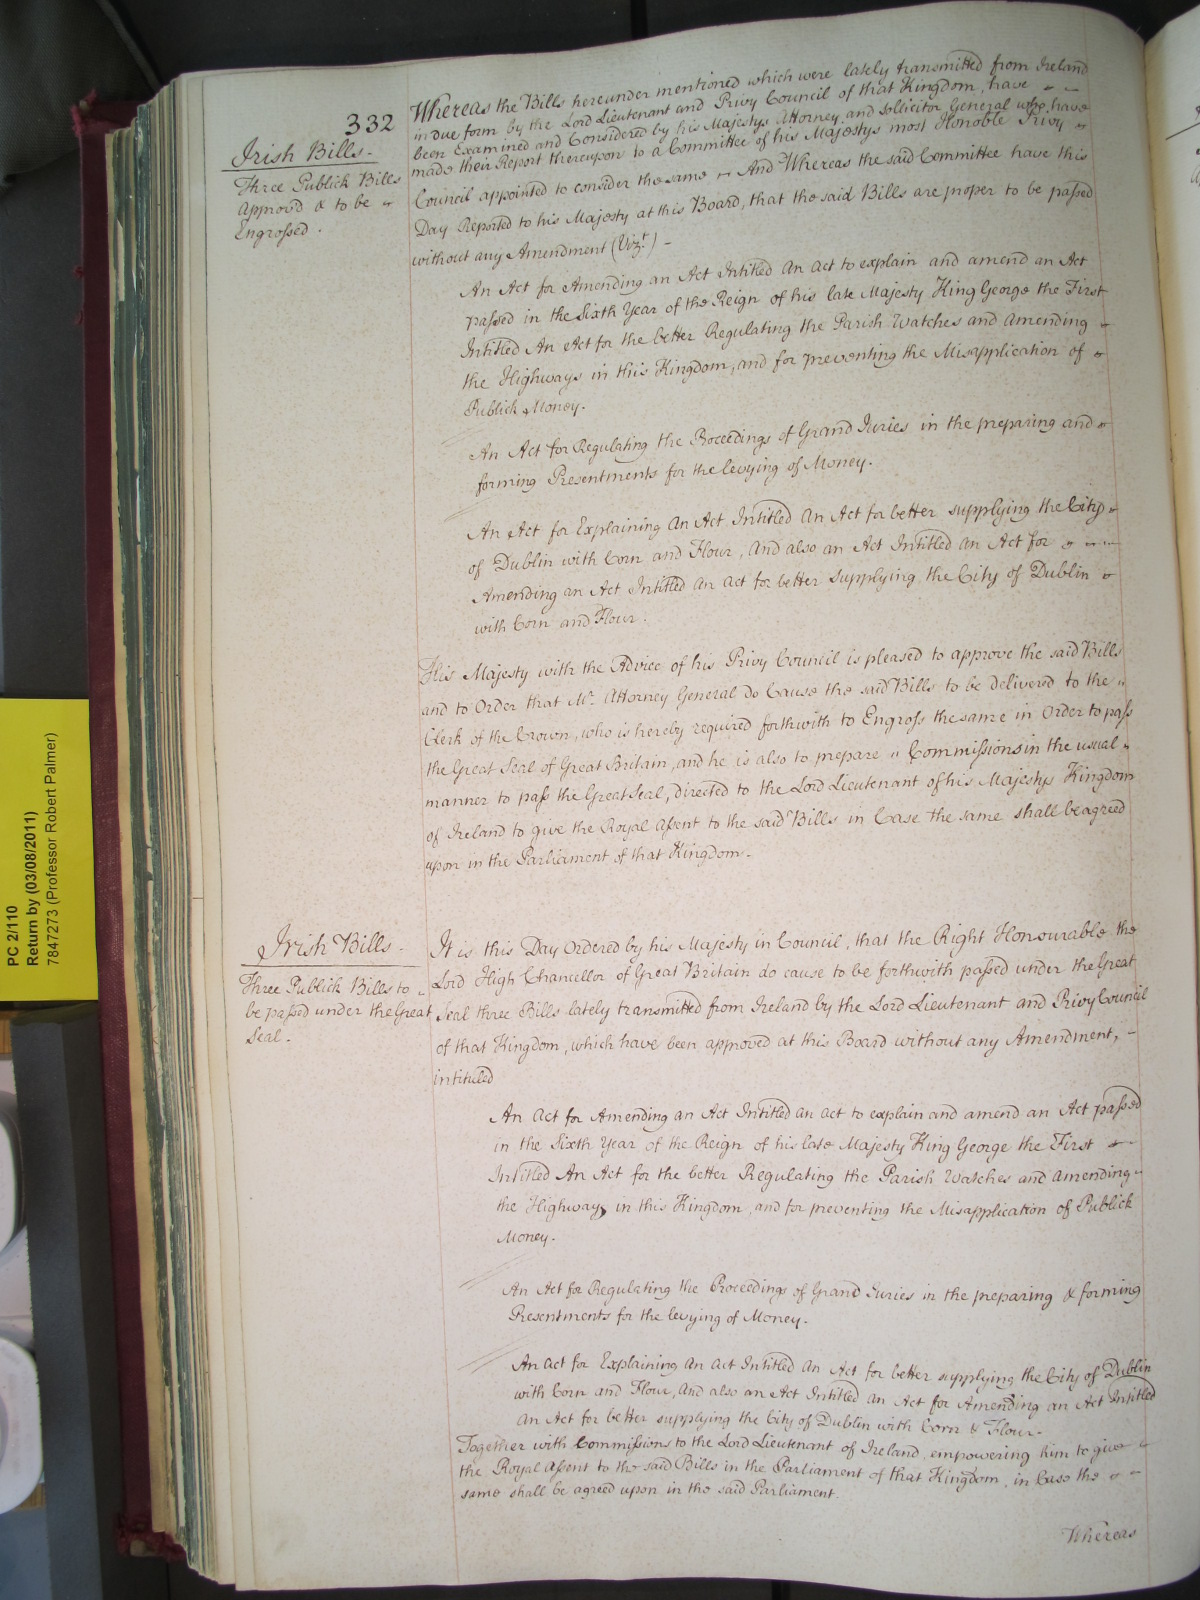 332
Irish Bills.
Three Publick Bills
Approv'd & to be
Engrossed.
Whereas the Bills hereunder mentioned which were lately transmitted from Ireland
in due form by the Lord Lieutenant and Privy Council of that Kingdom, have
been Examined and Considered by his Majestys Attorney and Sollicitor General who have
made their Report thereupon to a Committee of his Majestys most Honoble Privy
Council appointed to consider the same - And Whereas the said Committee have this
Day Reported to his Majesty at this Board, that the said Bills are proper to be passed
without any Amendment (Vizt.) -
An Act for Amending an Act Intitled An Act to explain and amend an Act
passed in the Sixth Year of the Reign of his late Majesty King George the First
Intitled An Act for the better Regulating the Parish Watches and Amending
the Highways in this Kingdom, and for preventing the Misapplication of
Publick Money.
An Act for Regulating the Proceedings of Grand Juries in the preparing and
forming Presentments for the levying of Money.
An Act for Explaining An Act Intitled An Act for better supplying the City
of Dublin with Corn and Flour, And also an Act Intitled an Act for
Amending an Act Intitled An Act for better Supplying the City of Dublin
with Corn and Flour.
His Majesty with the Advice of his Privy Council is pleased to approve the said Bills
and to Order that Mr. Attorney General do Cause the said Bills to be delivered to the
Clerk of the Crown, who is hereby required forthwith to Engross the same in Order to pass
the Great Seal of Great Britain, and he is also to prepare Commissions in the usual
manner to pass the Great Seal, directed to the Lord Lieutenant of his Majestys Kingdom
of Ireland to give the Royal Assent to the said Bills in Case the same shall be agreed
upon in the Parliament of that Kingdom.
Irish Bills.
Three Publick Bills to
be passed under the Great
Seal.
It is this Day Ordered by his Majesty in Council, that the Right Honourable the
Lord High Chancellor of Great Britain do cause to be forthwith passed under the Great
Seal three Bills lately transmitted from Ireland by the Lord Lieutenant and Privy Council
of that Kingdom, which have been approved at this Board without any Amendment, -
intituled
An Act for Amending an Act Intitled an act to explain and amend an Act passed
in the Sixth Year of the Reign of his late Majesty King George the First
Intitled An Act for the better Regulating the Parish Watches and Amending
the Highways in this Kingdom, and for preventing the Misapplication of Publick
Money.
An Act for Regulating the Proceedings of Grand Juries in the preparing & forming
Presentments for the levying of Money.
An Act for Explaining An Act Intitled An Act for better supplying the City of Dublin
with Corn and Flour, And also an Act Intitled an Act for Amending an Act Intitled
An Act for better supplying the City of Dublin with Corn & Flour.
Together with Commissions to the Lord Lieutenant of Ireland, empowering him to give
the Royal Assent to the said Bills in the Parliament of that Kingdom, in Case the
same shall be agreed upon in the said Parliament.
Whereas
PC 2/110
Return by (03/08/2011)
7847273 (Professor Robert Palmer)